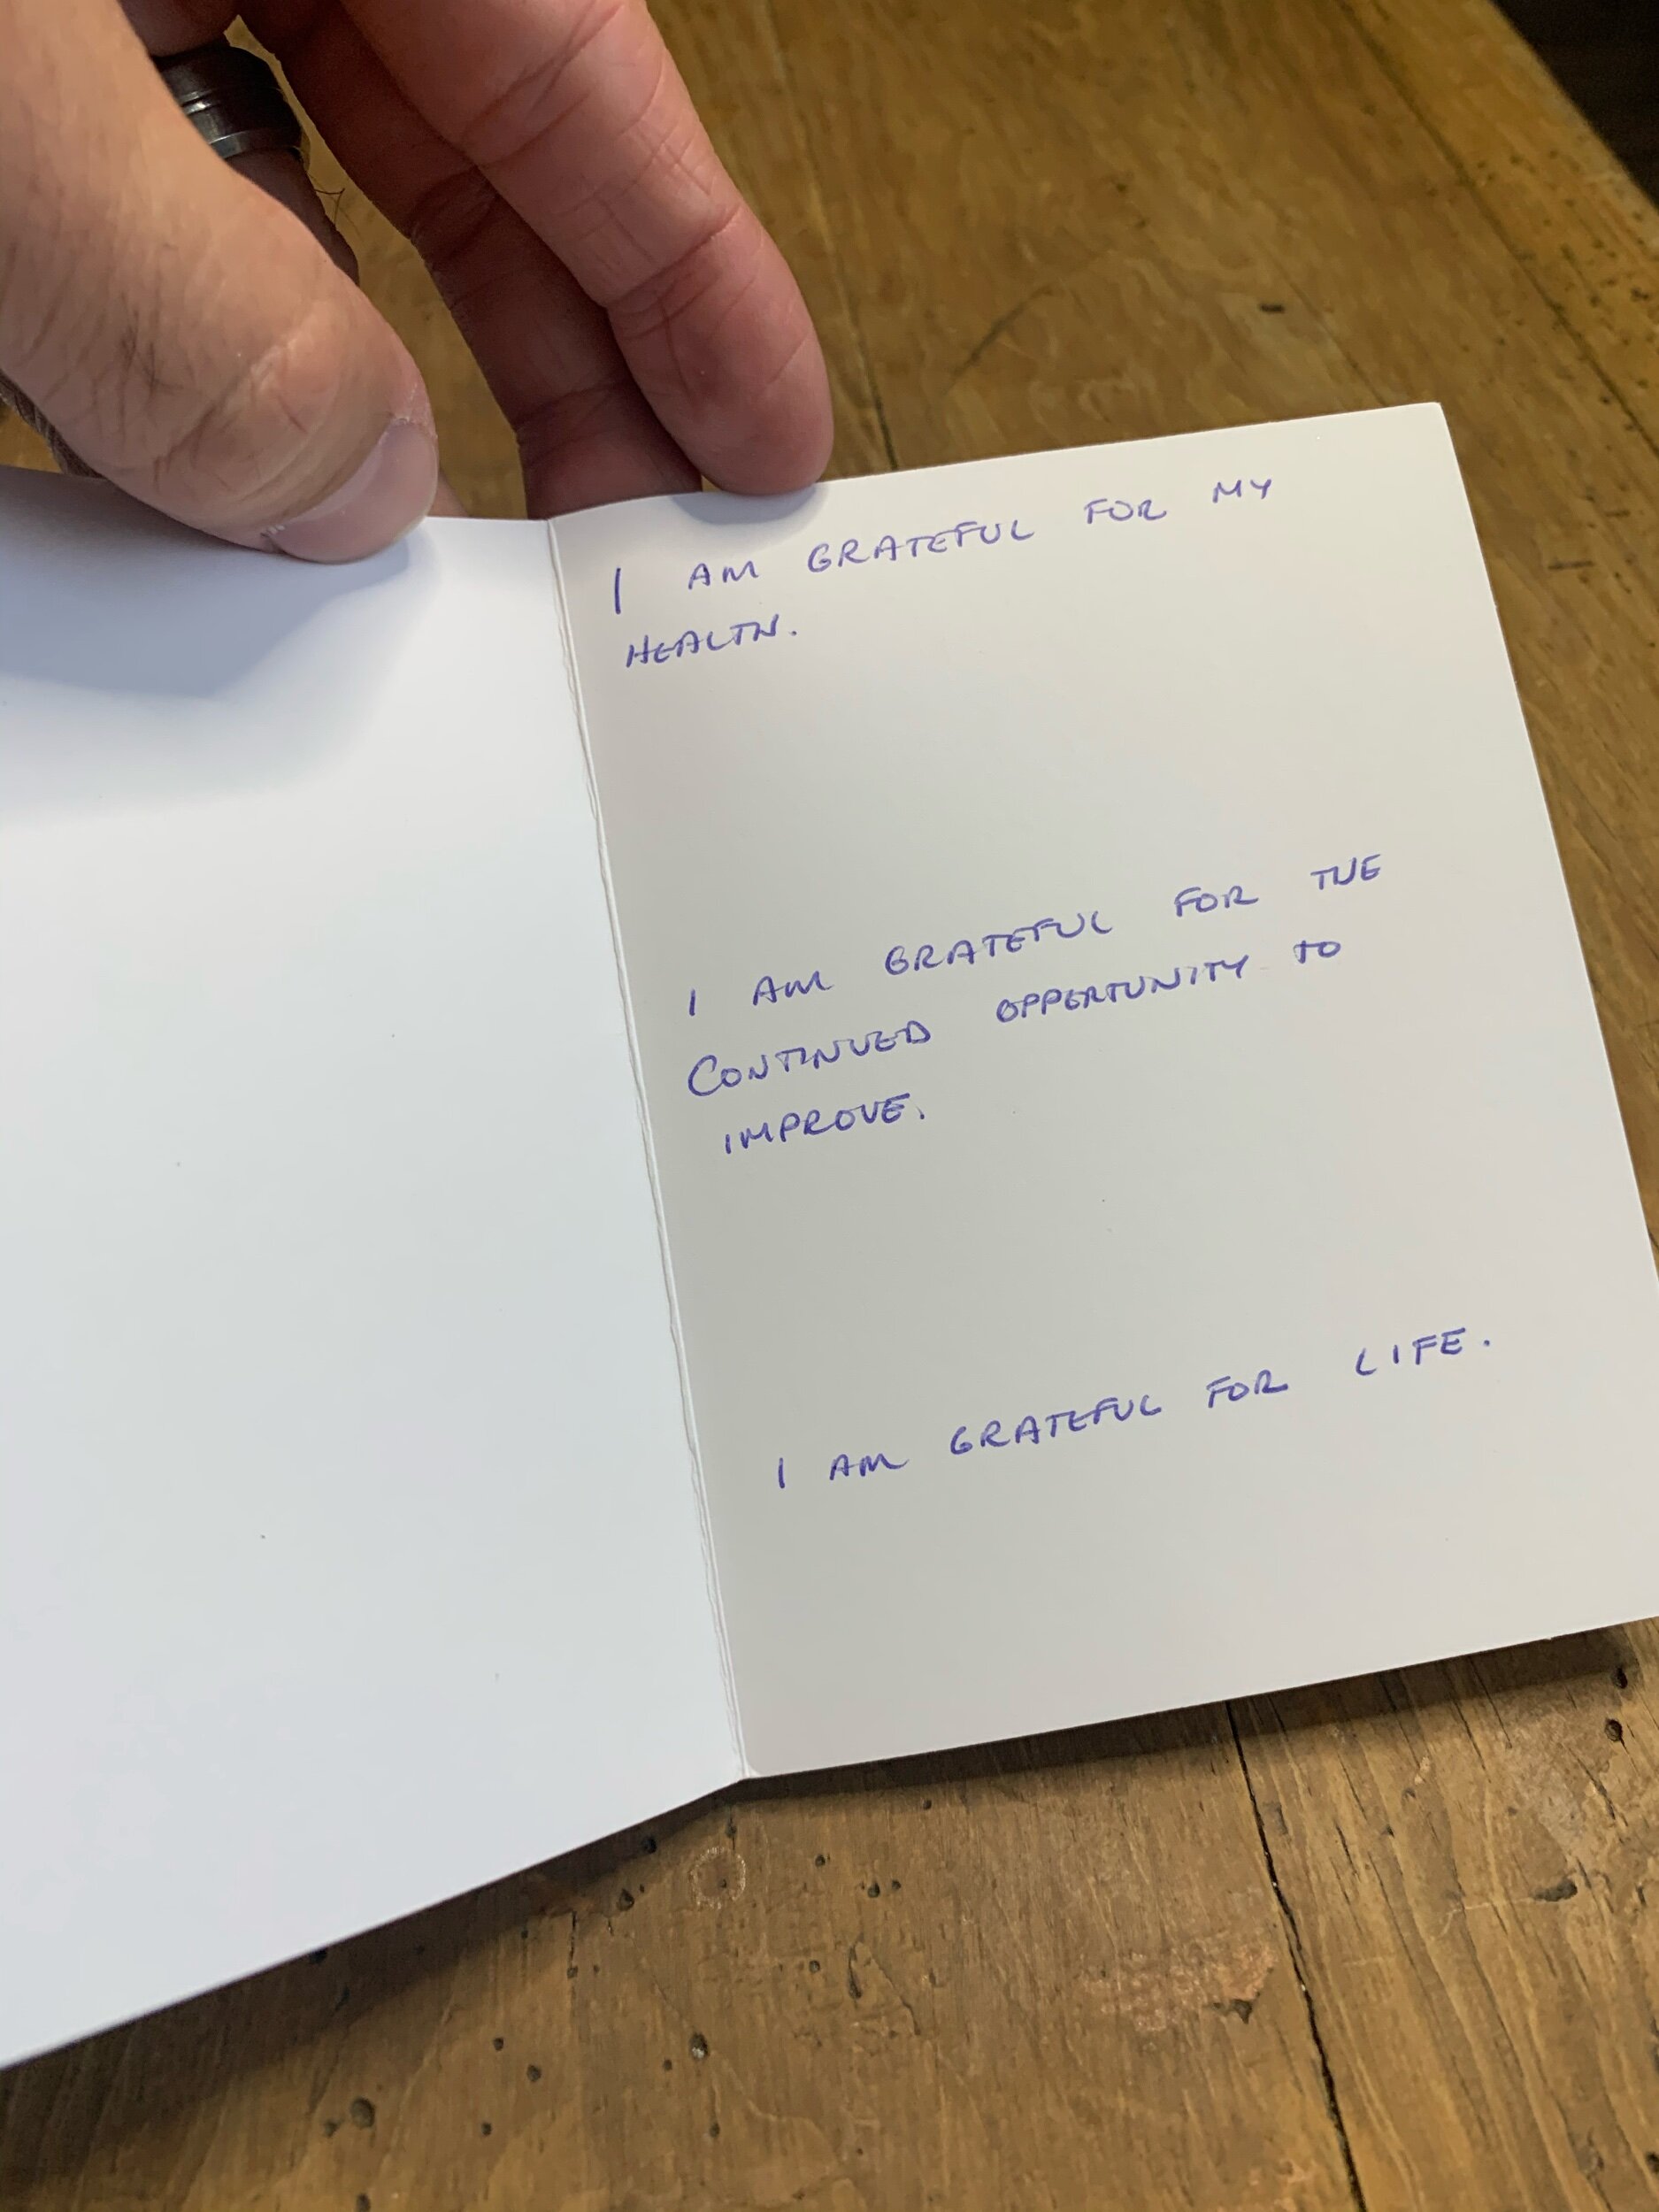 I AM GRATEFUL FOR MY
HEALTH.
I AM GRATEFUL FOR THE
CONTINUED OPPERTUNITY TO
IMPROVE.
I AM GRATEFUL FOR LIFE.